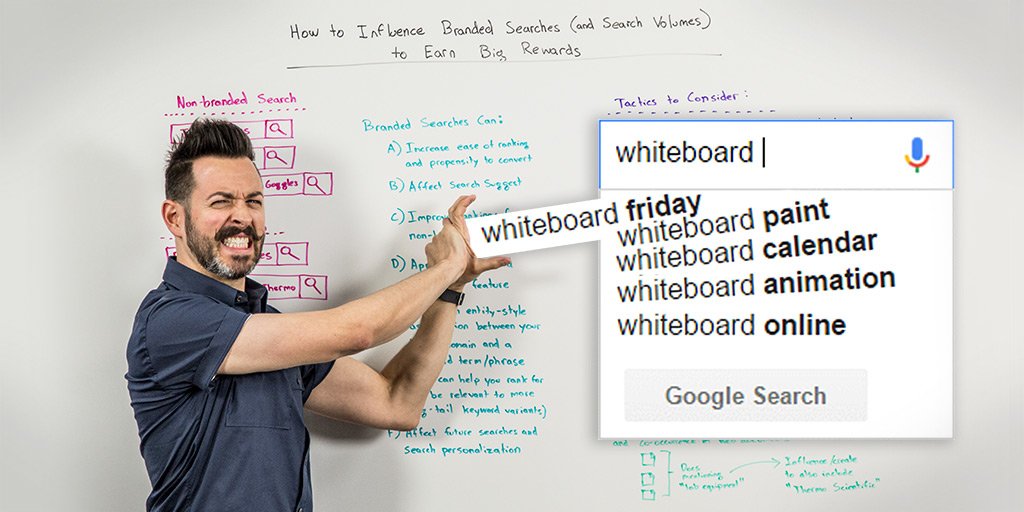 How to Influence Branded Searches (and Search Volumes)
to Earn Big Rewards
Non-branded Search
Goggles
Thermo
Branded Searches Can:
A) Increase ease of ranking
and propensity to convert
B) Affect Search Suggest
C)
D)
feature
entity-style
between your
and a
term/phrase
can help you rank for
be relevant to more
keyword variants)
F) Affect future searches and
search personalization
Tactics to Consider:
whiteboard
whiteboard friday
whiteboard paint
whiteboard calendar
whiteboard animation
whiteboard online
Google Search
Docs
mentioning
"lab equipment"
Influence/create
to also include
"Thermo Scientific"